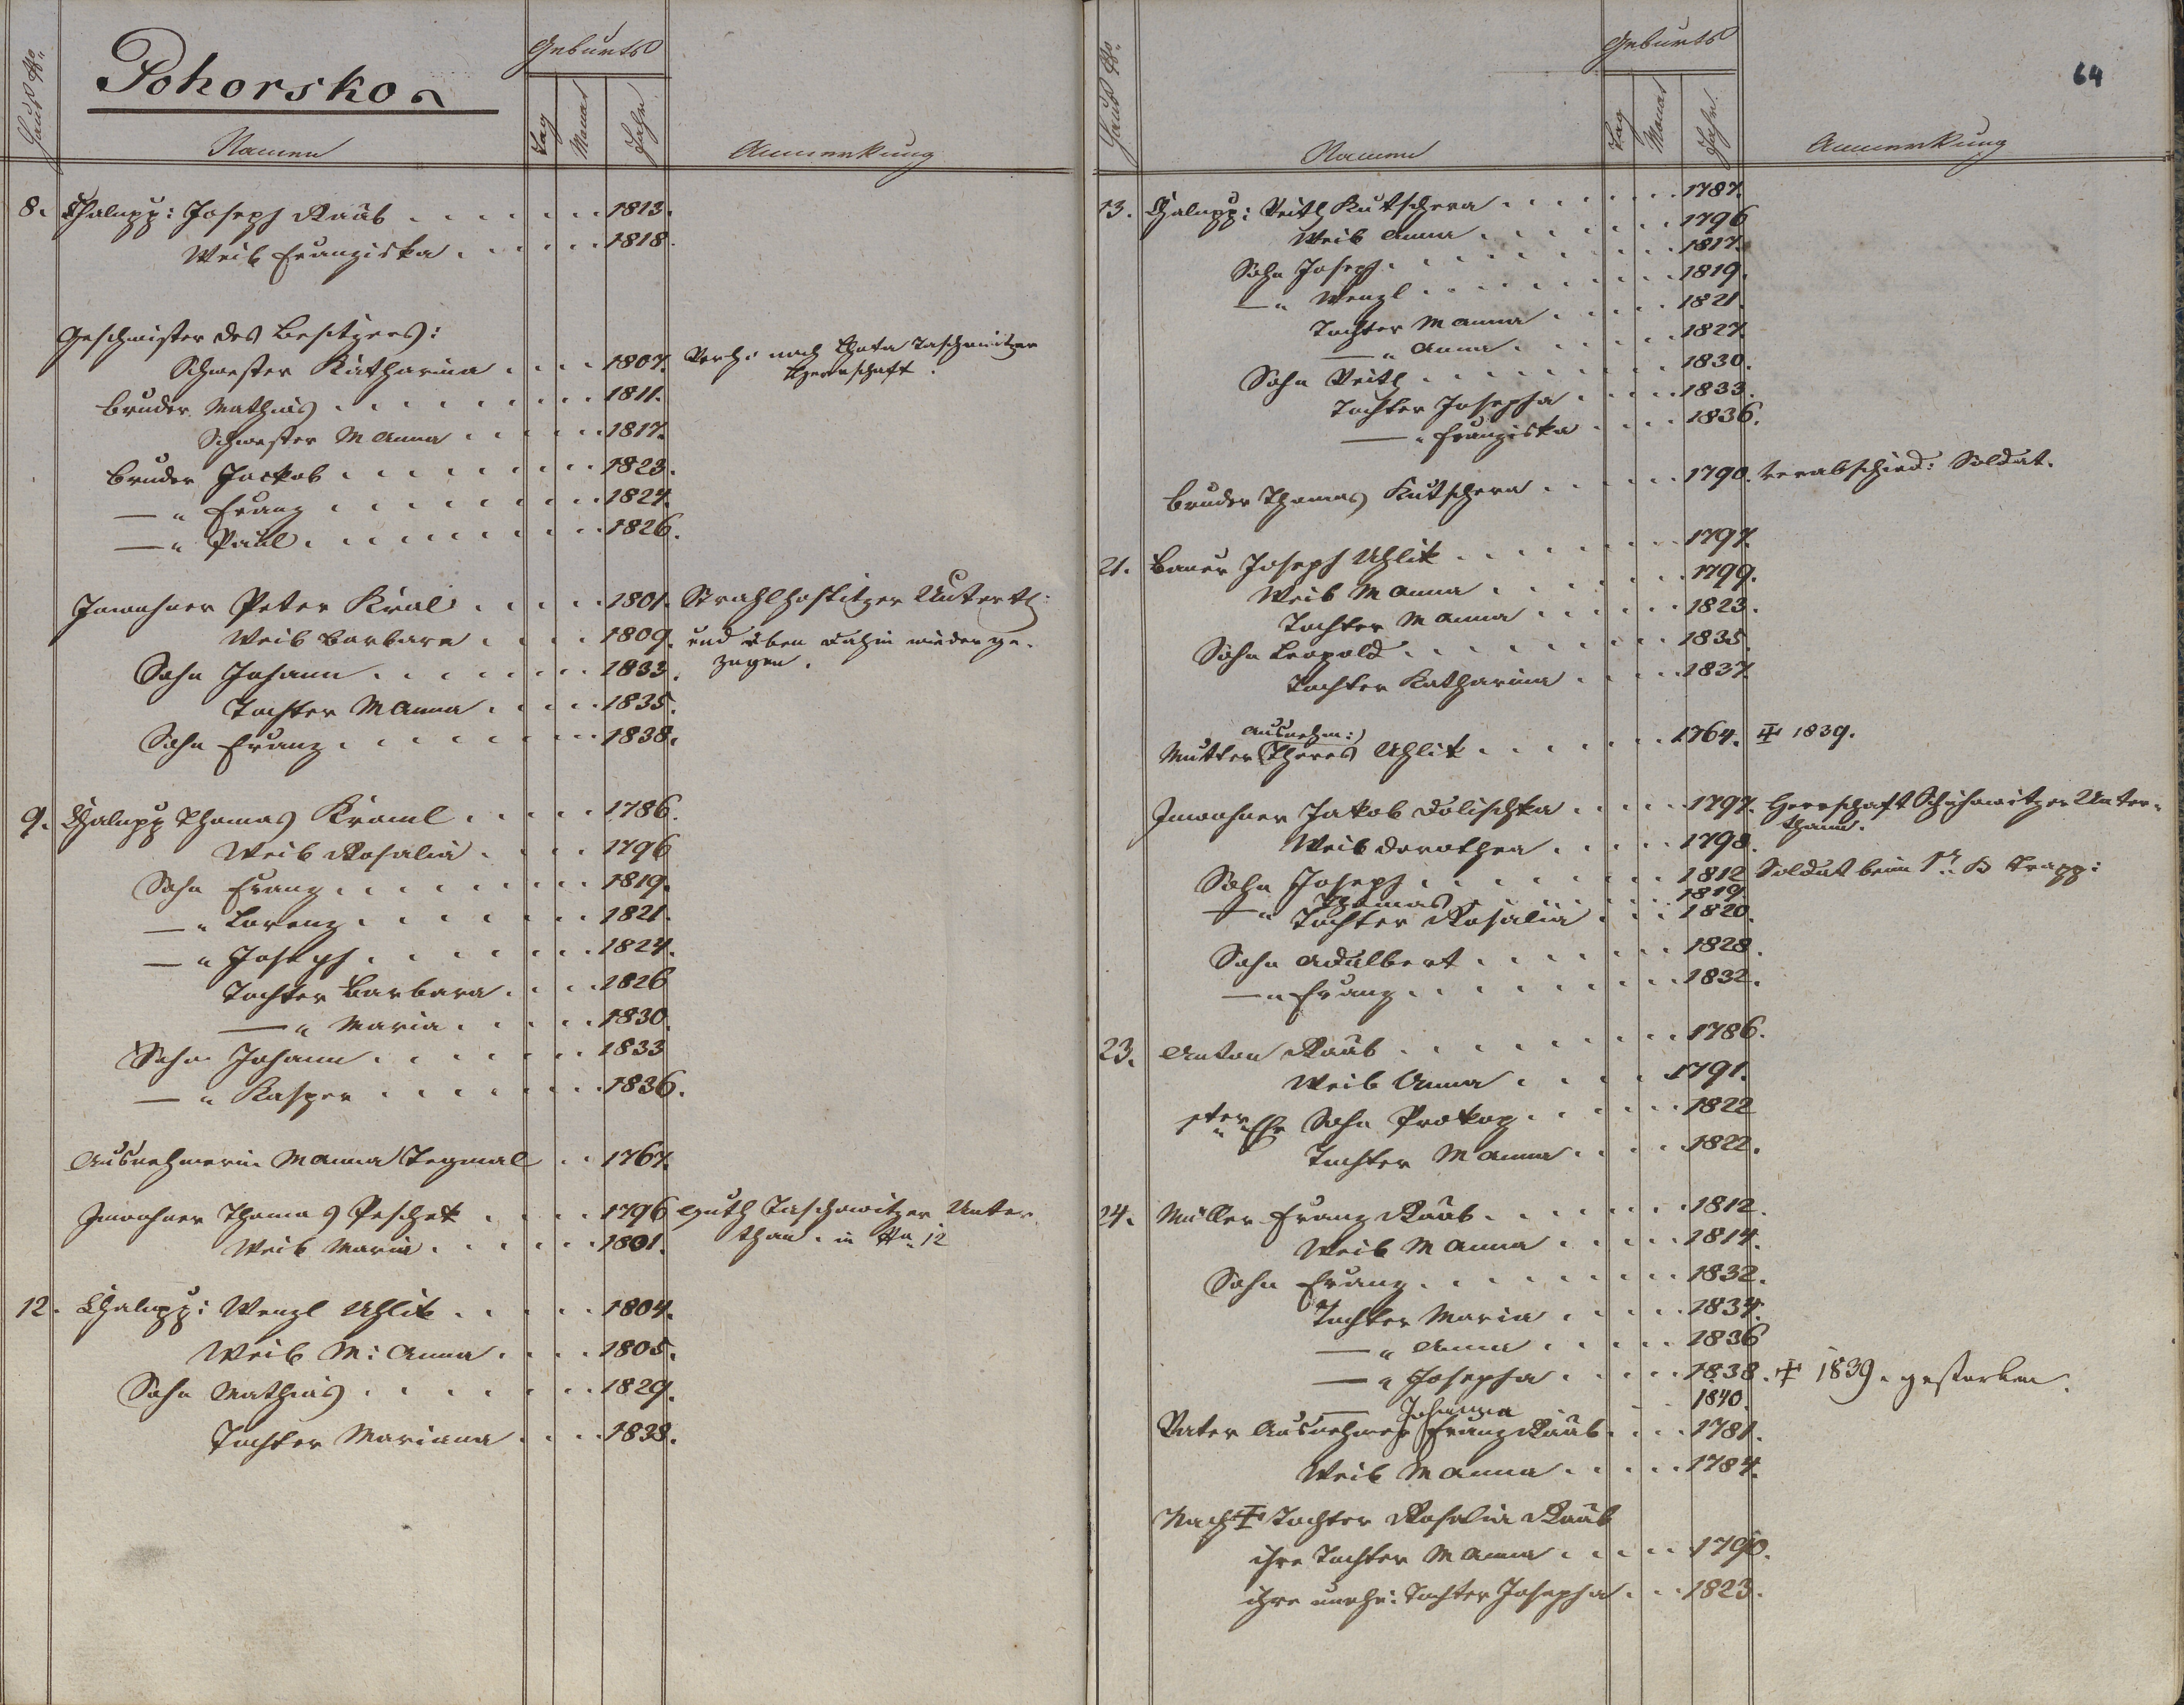 Haus No.
Pohorsko
Namen
Geburts
Tag
Monat
Jahr
Anmerkung
8. Chalupp: Joseph Raab . . . . . . . 1813.
Weib Franziska . . . . . . 1818.
Geschwister des Besitzers:
Schwester Katharina . . . . 1807. Verh: nach
Herrschaft.
Bruder Mathias . . . . . . . . . 1811.
Schwester M Anna . . . . . . 1817.
Bruder Jackob . . . . . . . . . 1823.
—" Franz . . . . . . . . . . 1824.
—" Paul . . . . . . . . . . 1826.
Inwohner Peter Kral . . . . . 1801. Strahlhostitzer Unterth:
Weib Barbara . . . . . 1809. und eben dahin wiederge-
Sohn Johann . . . . . . . . 1833. zogen.
Tochter M Anna . . . . . 1835.
Sohn Franz . . . . . . . . . 1838.
9. Chalupp Thomas Kraml . . . . . 1786.
Weib Rosalia . . . . 1796
Sohn Franz . . . . . . . . . 1819.
—" Lorenz . . . . . . . . 1821.
—" Joseph . . . . . . . . 1824.
Tochter Barbara . . . . 1826
—" Maria . . . . . 1830.
Sohn Johann . . . . . . . 1833
—" Kasper . . . . . . . . 1836.
Ausnehmerin M Anna Tegmal . . 1767.
Inwohner Thomas Peschek . . . . 1796 Guth Taschowitzer Unter-
Weib Maria . . . . . . 1801. than. in No 12
12. Chalupp: Wenzl Uhlik . . . . . 1804.
Weib M: Anna . . . . 1805.
Sohn Mathias . . . . . . . . 1829.
Tochter Mariana . . . . 1838.
64
Haus No.
Namen
Geburts
Tag
Monat
Jahr
Anmerkung
13. Chalupp: Veith Kutschera . . . . . . . 1787.
Weib Anna . . . . . . . . 1796
Sohn Joseph . . . . . . . . . 1817.
—" Wenzl . . . . . . . . . 1819.
Tochter M Anna . . . . . 1821.
—" Anna . . . . . . 1827.
Sohn Veith . . . . . . . . . 1830.
Tochter Josepha . . . . . 1833.
—" Franziska . . . . 1836.
Bruder Thomas Kutschera . . . . . . 1790. verabschied: Soldat.
21. Bauer Joseph Uhlik . . . . . . . . 1797.
Weib M Anna . . . . . . . . 1799.
Tochter M Anna . . . . . . 1823.
Sohn Leopold . . . . . . . . . 1835.
Tochter Katharina . . . . . 1837.
Ausnehm:)
Mutter (Theres Uhlik . . . . . . . 1764. ‡ 1839.
Inwohner Jakob Dolischka . . . . . 1797. Herrschaft Schichowitzer Unter-
thann.
Weib Dorothea . . . . . 1798.
Sohn Joseph . . . . . . . . 1812 Soldat beim
—" Thomas . . . . . . . 1819
Tochter Rosalia . . . . 1820.
Sohn Adalbert . . . . . . . 1828.
—" Franz . . . . . . . . . 1832.
23. Anton Raab . . . . . . . . . 1786.
Weib Anna . . . . . 1791.
1ter Ehe Sohn Prokop . . . . . . 1822
Tochter M Anna . . . . . 1822.
24. Müller Franz Raab . . . . . . . 1812.
Weib M Anna . . . . . 1814.
Sohn Franz . . . . . . . . . 1832.
Tochter Maria . . . . . 1834.
—" Anna . . . . . . 1836
—" Josepha . . . . . 1838. ‡ 1839. gestorben.
— Johanna . . 1840.
Vater Ausnehmer Franz Raab . . . . 1781.
Weib M Anna . . . . . 1784.
Nach ‡ Tochter Rosalia Raab
ihre Tochter M Anna . . . . . 1790.
ihre unehe: Tochter Josepha . . . 1823.